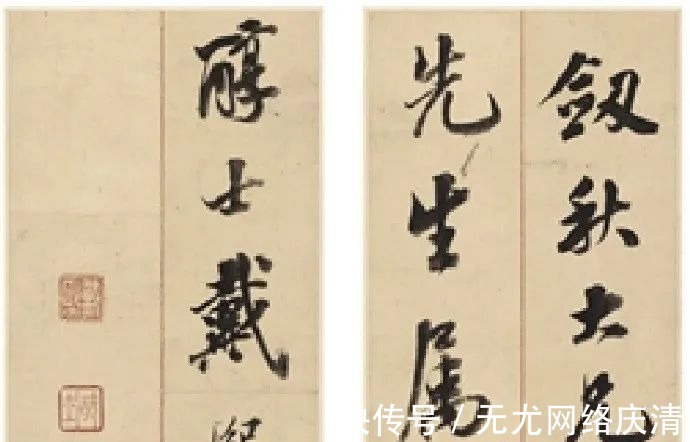 劔秋大兄
先生属
醇士戴
传号 / 无尤网络庆清